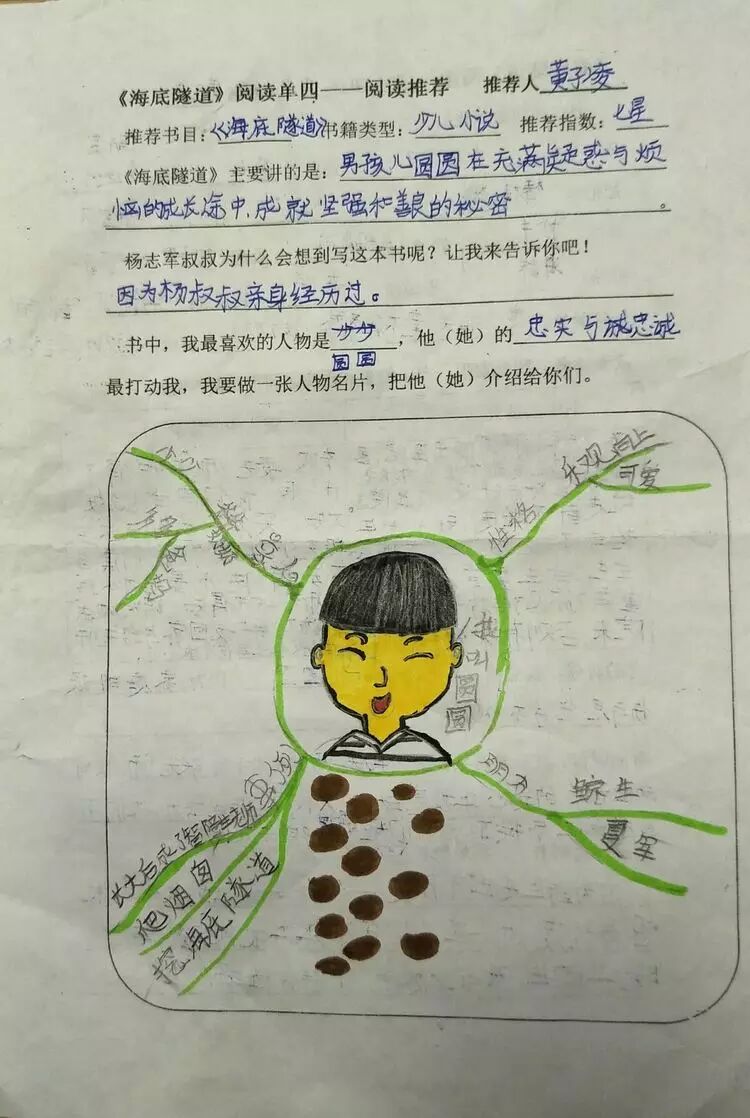 《海底隧道》阅读单四——阅读推荐 推荐人 黄子凌
推荐书目:《海底隧道》书籍类型:少儿小说 推荐指数:七星
《海底隧道》主要讲的是:男孩儿圆圆在充满疑惑与烦
恼的成长途中,成就坚强和善良的秘密。
杨志军叔叔为什么会想到写这本书呢?让我来告诉你吧!
因为杨叔叔亲身经历过。
书中,我最喜欢的人物是 ,他(她)的 忠实与诚忠诚
圆圆
最打动我,我要做一张人物名片,把他(她)介绍给你们。
乐观向上
可爱
性格
家人
我叫
圆圆
朋友
鲸生
夏军
事例
长大后成了
爬烟囱
挖海底隧道